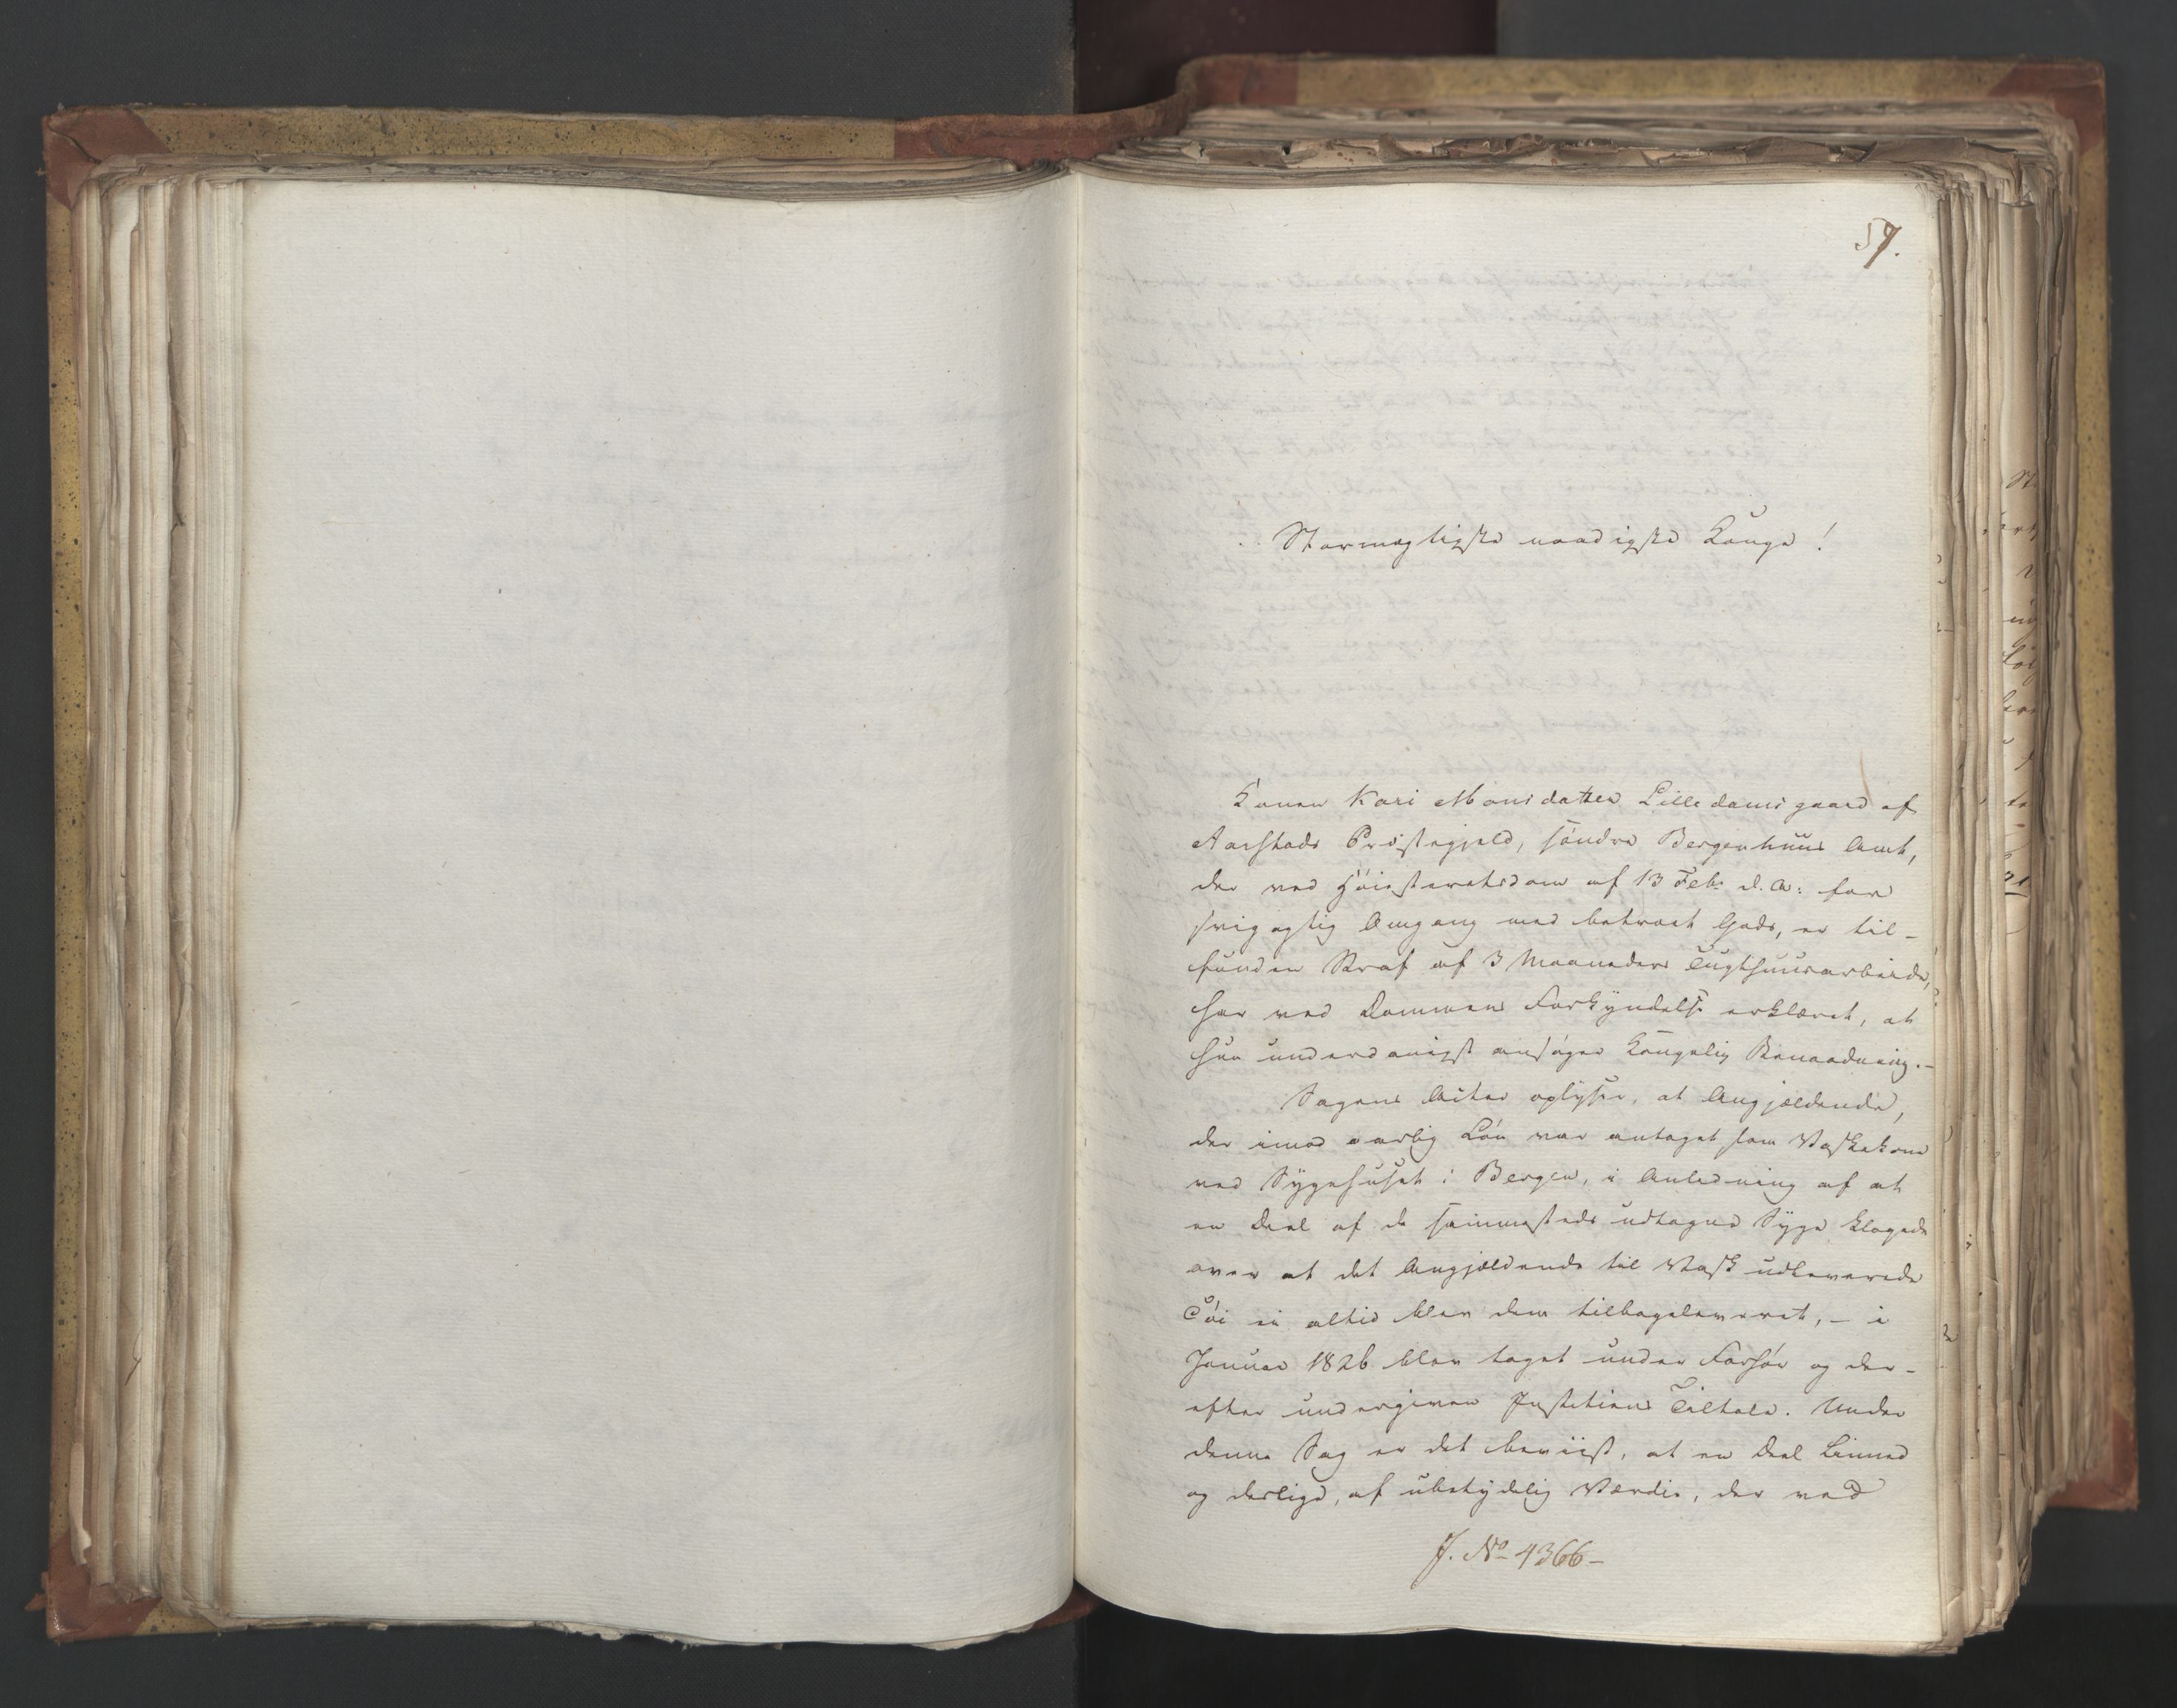 59.
Stormægtigste naadigste Konge!
Konen Kari Monsdatter Lille damsgaard af
Aarstads Præstegjeld, søndre Bergenhuus Amt,
der ved Høiesteretsdom af 13 Feb. d. A: for
svigagtig Omgang med betroet Gods, er til-
funden Straf af 3 Maaneders Tugthuusarbeide,
har ved Dommens Forkyndelse erklæret, at
hun underdanigst ansøger Kongelig Benaadning.-
Sagens Acter oplyser, at Angjældende,
der imod aarlig Løn var antaget som Vaskekone
ved Sygehuset i Bergen, i Anledning af at
en Deel af de sammesteds udtagne Syge klagede
over at det Angjældende til Vask udleverede
Tøi ei altid blev dem tilbageleveret, - i
Januar 1826 blev taget under Forhør og der-
efter undergiven Justitiens Tiltale. Under
denne Sag er det beviist, at en Deel Linned
og desligt, af ubetydelig Værdie, der ved
J. No 4366-